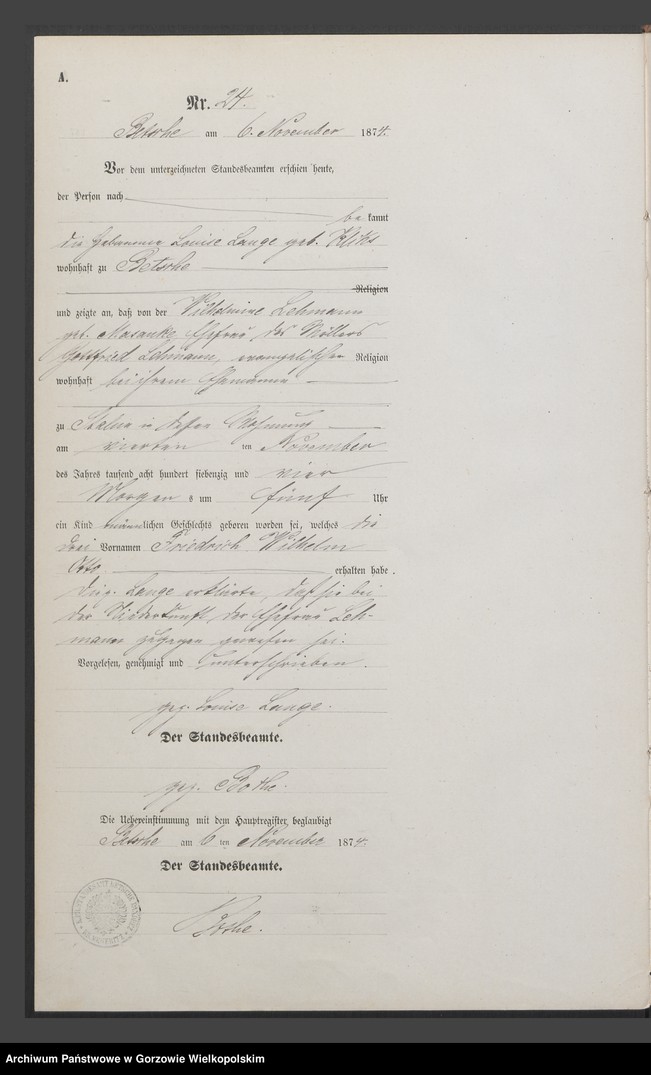 A.
Nr. 24.
Betsche am 6. November 1874.
Vor dem unterzeichneten Standesbeamten erschien heute,
der Person nach
bekannt
die Hebamme Louise Lange geb.
wohnhaft zu Betsche
Religion
und zeigte an, daß von der Wilhelmine Lehmann
geb. Masanke Ehefrau des Müllers
Gottfried Lehmann, evangelischer Religion
wohnhaft bei ihrem Ehemanne
zu in dessen Wohnung
am vierten ten November
des Jahres tausend acht hundert siebenzig und vier
Morgens um fünf Uhr
ein Kind männlichen Geschlechts geboren worden sei, welches die
drei Vornamen Friedrich Wilhelm
Otto erhalten habe.
Lange erklärte, daß sie bei
der Niederkunft der Ehefrau Leh-
mann zugegen gewesen sei.
Vorgelesen, genehmigt und unterschrieben.
gez. Louise Lange.
Der Standesbeamte.
gez. Bothe.
Die Uebereinstimmung mit dem Hauptregister beglaubigt
Betsche am 6 ten November 1874.
Der Standesbeamte.
Bothe.
Archiwum Państwowe w Gorzowie Wielkopolskim